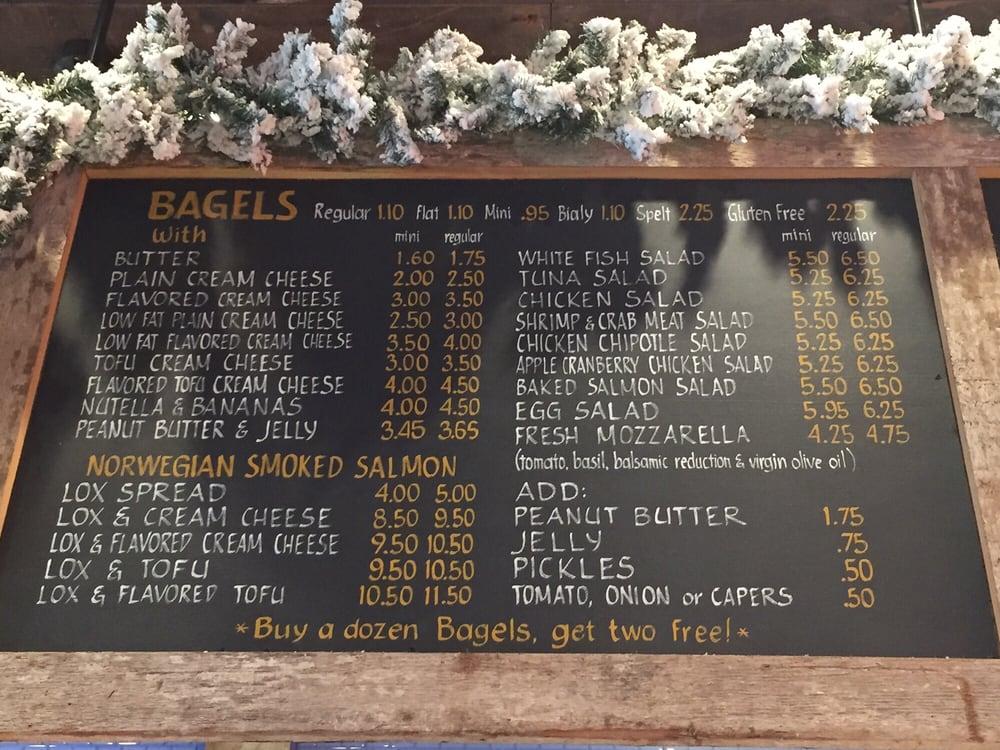 BAGELS Regular 1.10 Flat 1.10 Mini .95 Bialy 1.10 Spelt 2.25 Gluten Free 2.25
With mini regular
BUTTER 1.60 1.75
PLAIN CREAM CHEESE 2.00 2.50
FLAVORED CREAM CHEESE 3.00 3.50
LOW FAT PLAIN CREAM CHEESE 2.50 3.00
LOW FAT FLAVORED CREAM CHEESE 3.50 4.00
TOFU CREAM CHEESE 3.00 3.50
FLAVORED TOFU CREAM CHEESE 4.00 4.50
NUTELLA & BANANAS 4.00 4.50
PEANUT BUTTER & JELLY 3.45 3.65
NORWEGIAN SMOKED SALMON
LOX SPREAD 4.00 5.00
LOX & CREAM CHEESE 8.50 9.50
LOX & FLAVORED CREAM CHEESE 9.50 10.50
LOX & TOFU 9.50 10.50
LOX & FLAVORED TOFU 10.50 11.50
mini regular
WHITE FISH SALAD 5.50 6.50
TUNA SALAD 5.25 6.25
CHICKEN SALAD 5.25 6.25
SHRIMP & CRAB MEAT SALAD 5.50 6.50
CHICKEN CHIPOTLE SALAD 5.25 6.25
APPLE CRANBERRY CHICKEN SALAD 5.25 6.25
BAKED SALMON SALAD 5.50 6.50
EGG SALAD 5.95 6.25
FRESH MOZZARELLA 4.25 4.75
(tomato, basil, balsamic reduction & virgin olive oil)
ADD:
PEANUT BUTTER 1.75
JELLY .75
PICKLES .50
TOMATO, ONION or CAPERS .50
*Buy a dozen Bagels, get two free!*